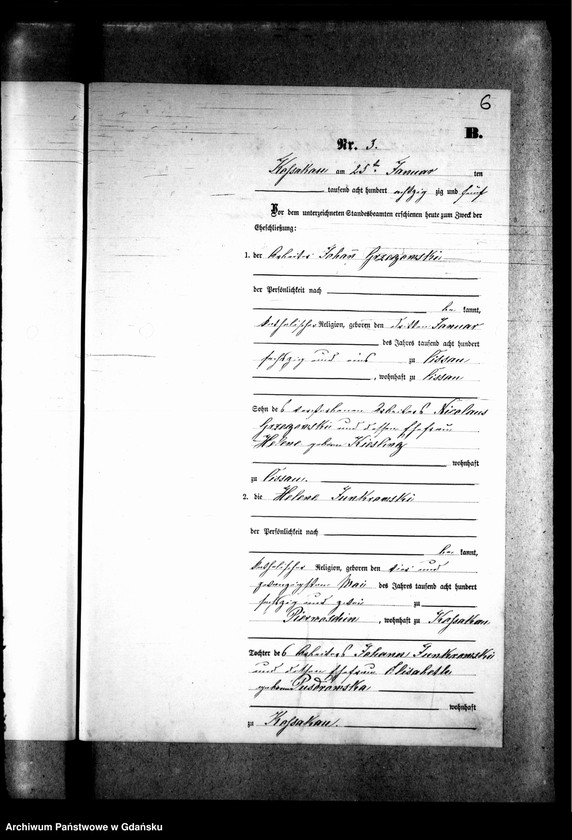 6
B.
Nr. 3.
Kossakau am 25ten Januar ten
tausend acht hundert achtzig zig und fünf
Vor dem unterzeichneten Standesbeamten erschienen heute zum Zweck der
Eheschließung:
1. der Arbeiter Johann Grzegowski
der Persönlichkeit nach
be kannt,
katholischer Religion, geboren den dritten Januar
des Jahres tausend acht hundert
sechszig und eins zu
, wohnhaft zu
Sohn des verstorbenen Arbeiters Nicolaus
Grzegowski und dessen Ehefrau
Helene geboren
wohnhaft
zu
2. die Helene Junkrowski
der Persönlichkeit nach
be kannt,
katholischer Religion, geboren den vier und
zwanzigsten Mai des Jahres tausend acht hundert
sechszig und zwei zu
Pierwoschin , wohnhaft zu Kossakau
Tochter des Arbeiters Johann Junkrowski
und dessen Ehefrau Elisabeth
geborene
wohnhaft
zu Kossakau.
Archiwum Państwowe w Gdańsku